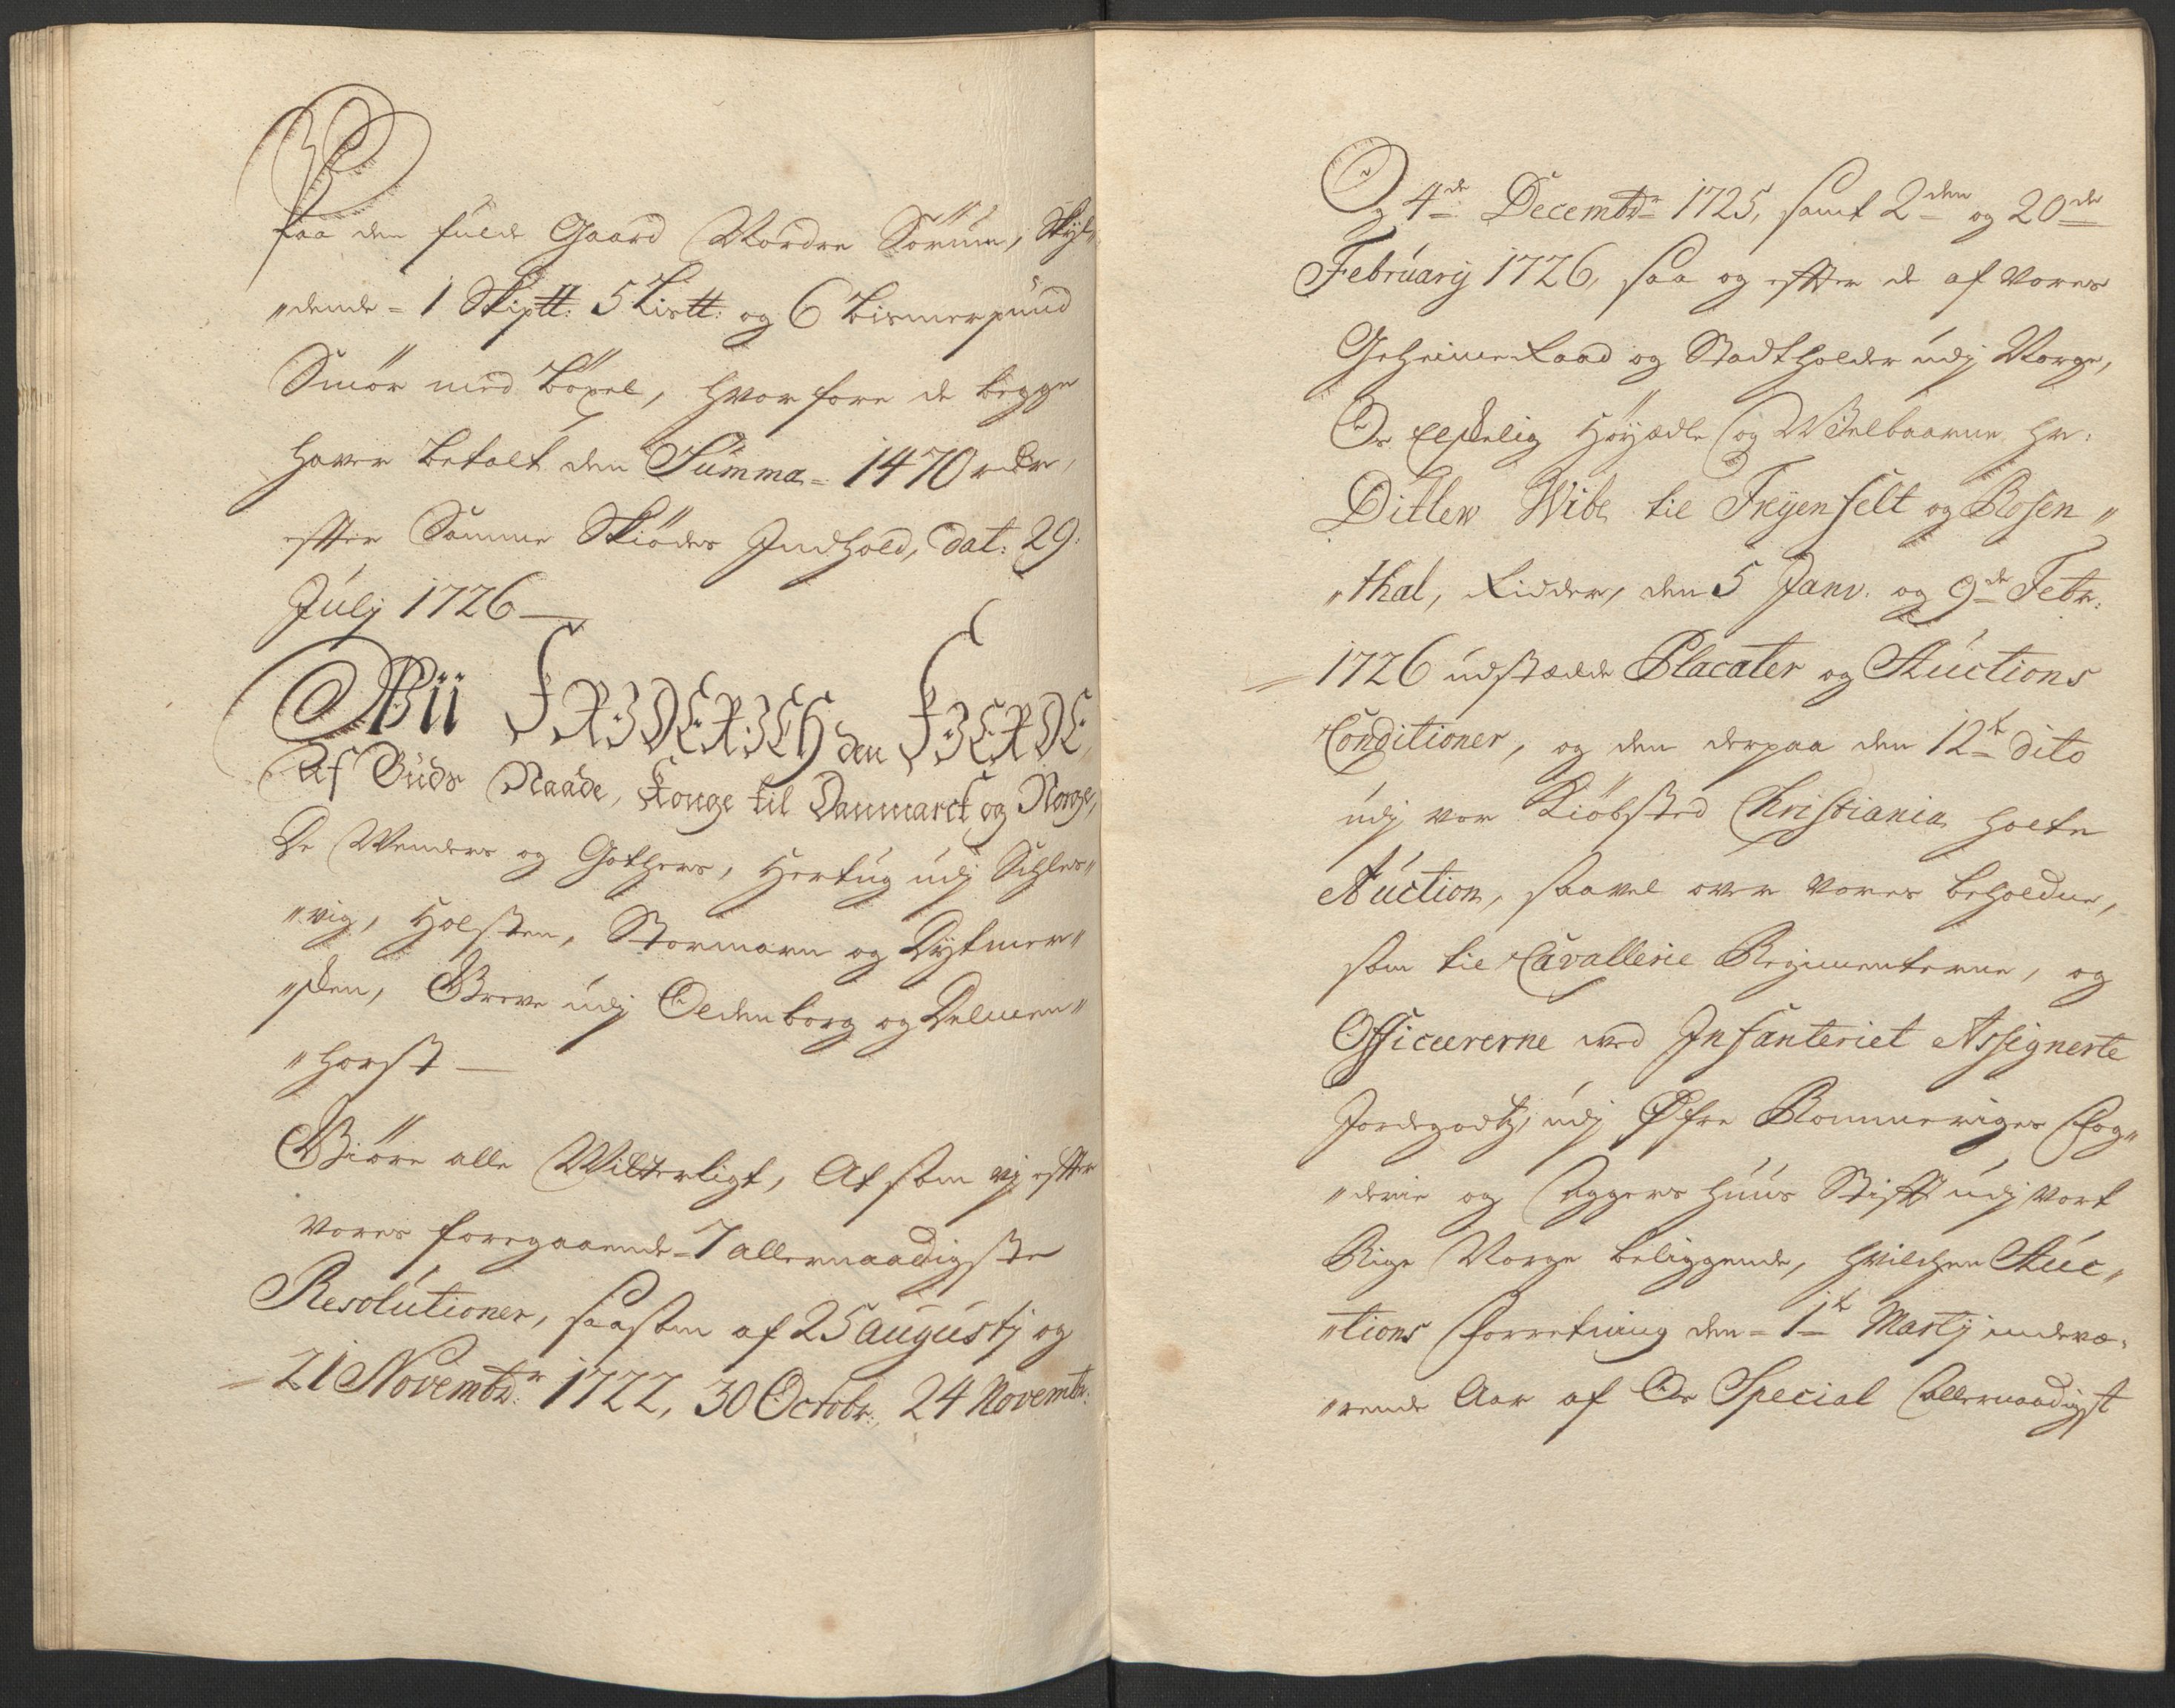 Paa den fulde Gaard Nordre Sörum, Skyl„
„dende = 1 Skiptt: 5 Listt: og 6 Bismerpund
Smör med Böxel, hvorfore de begge
haver betalt den Summa = 1470 rdr,
effter Samme Skiödes Indhold, dat: 29.
Julj 1726 —
Wii FRIDERICH den FIERDE,
Af Guds Naade, Konge til Danmarck og Norge,
De Wenders og Gothers, Hertug udj Schles„
„vig, Holsten, Stormarn og Dytmer„
„sken, Greve udj Oldenborg og Delmen„
„horst —
Giöre alle Witterligt, At som vj effter
vores foregaaende = 7 allernaadigste
Resolutioner, saasom af 25 augustj og
21 Novembr: 1722, 30 Octobr:, 24 Novembr:
Og 4de Decembr: 1725, samt 2den og 20de
February 1726, saa og effter de af vores
Geheime Raad og Stadtholder udj Norge,
Os elskelig Höyædle og Welbaarne Hr:
Ditlew Wibe til Freyenfelt og Rosen„
„thal, Ridder, den 5 Janv. og 9de Febr:
1726 udstædde Placater og Auctions
Conditioner, og den derpaa den 12t dito
udj vor Kiöbsted Christiania holte
Auction, saavel over vores beholdne,
som til Cavallerie Regimenterne, og
Officererne ved Infanteriet Assignerte
Jordegodtz, udj Øfre Rommeriges Fog„
„derie og Aggershuus Stifft udj vort
Rige Norge beliggende, hvilchen Auc„
„tions Forretning den = 1t Martj indevæ„
„rende Aar af Os Special allernaadigst